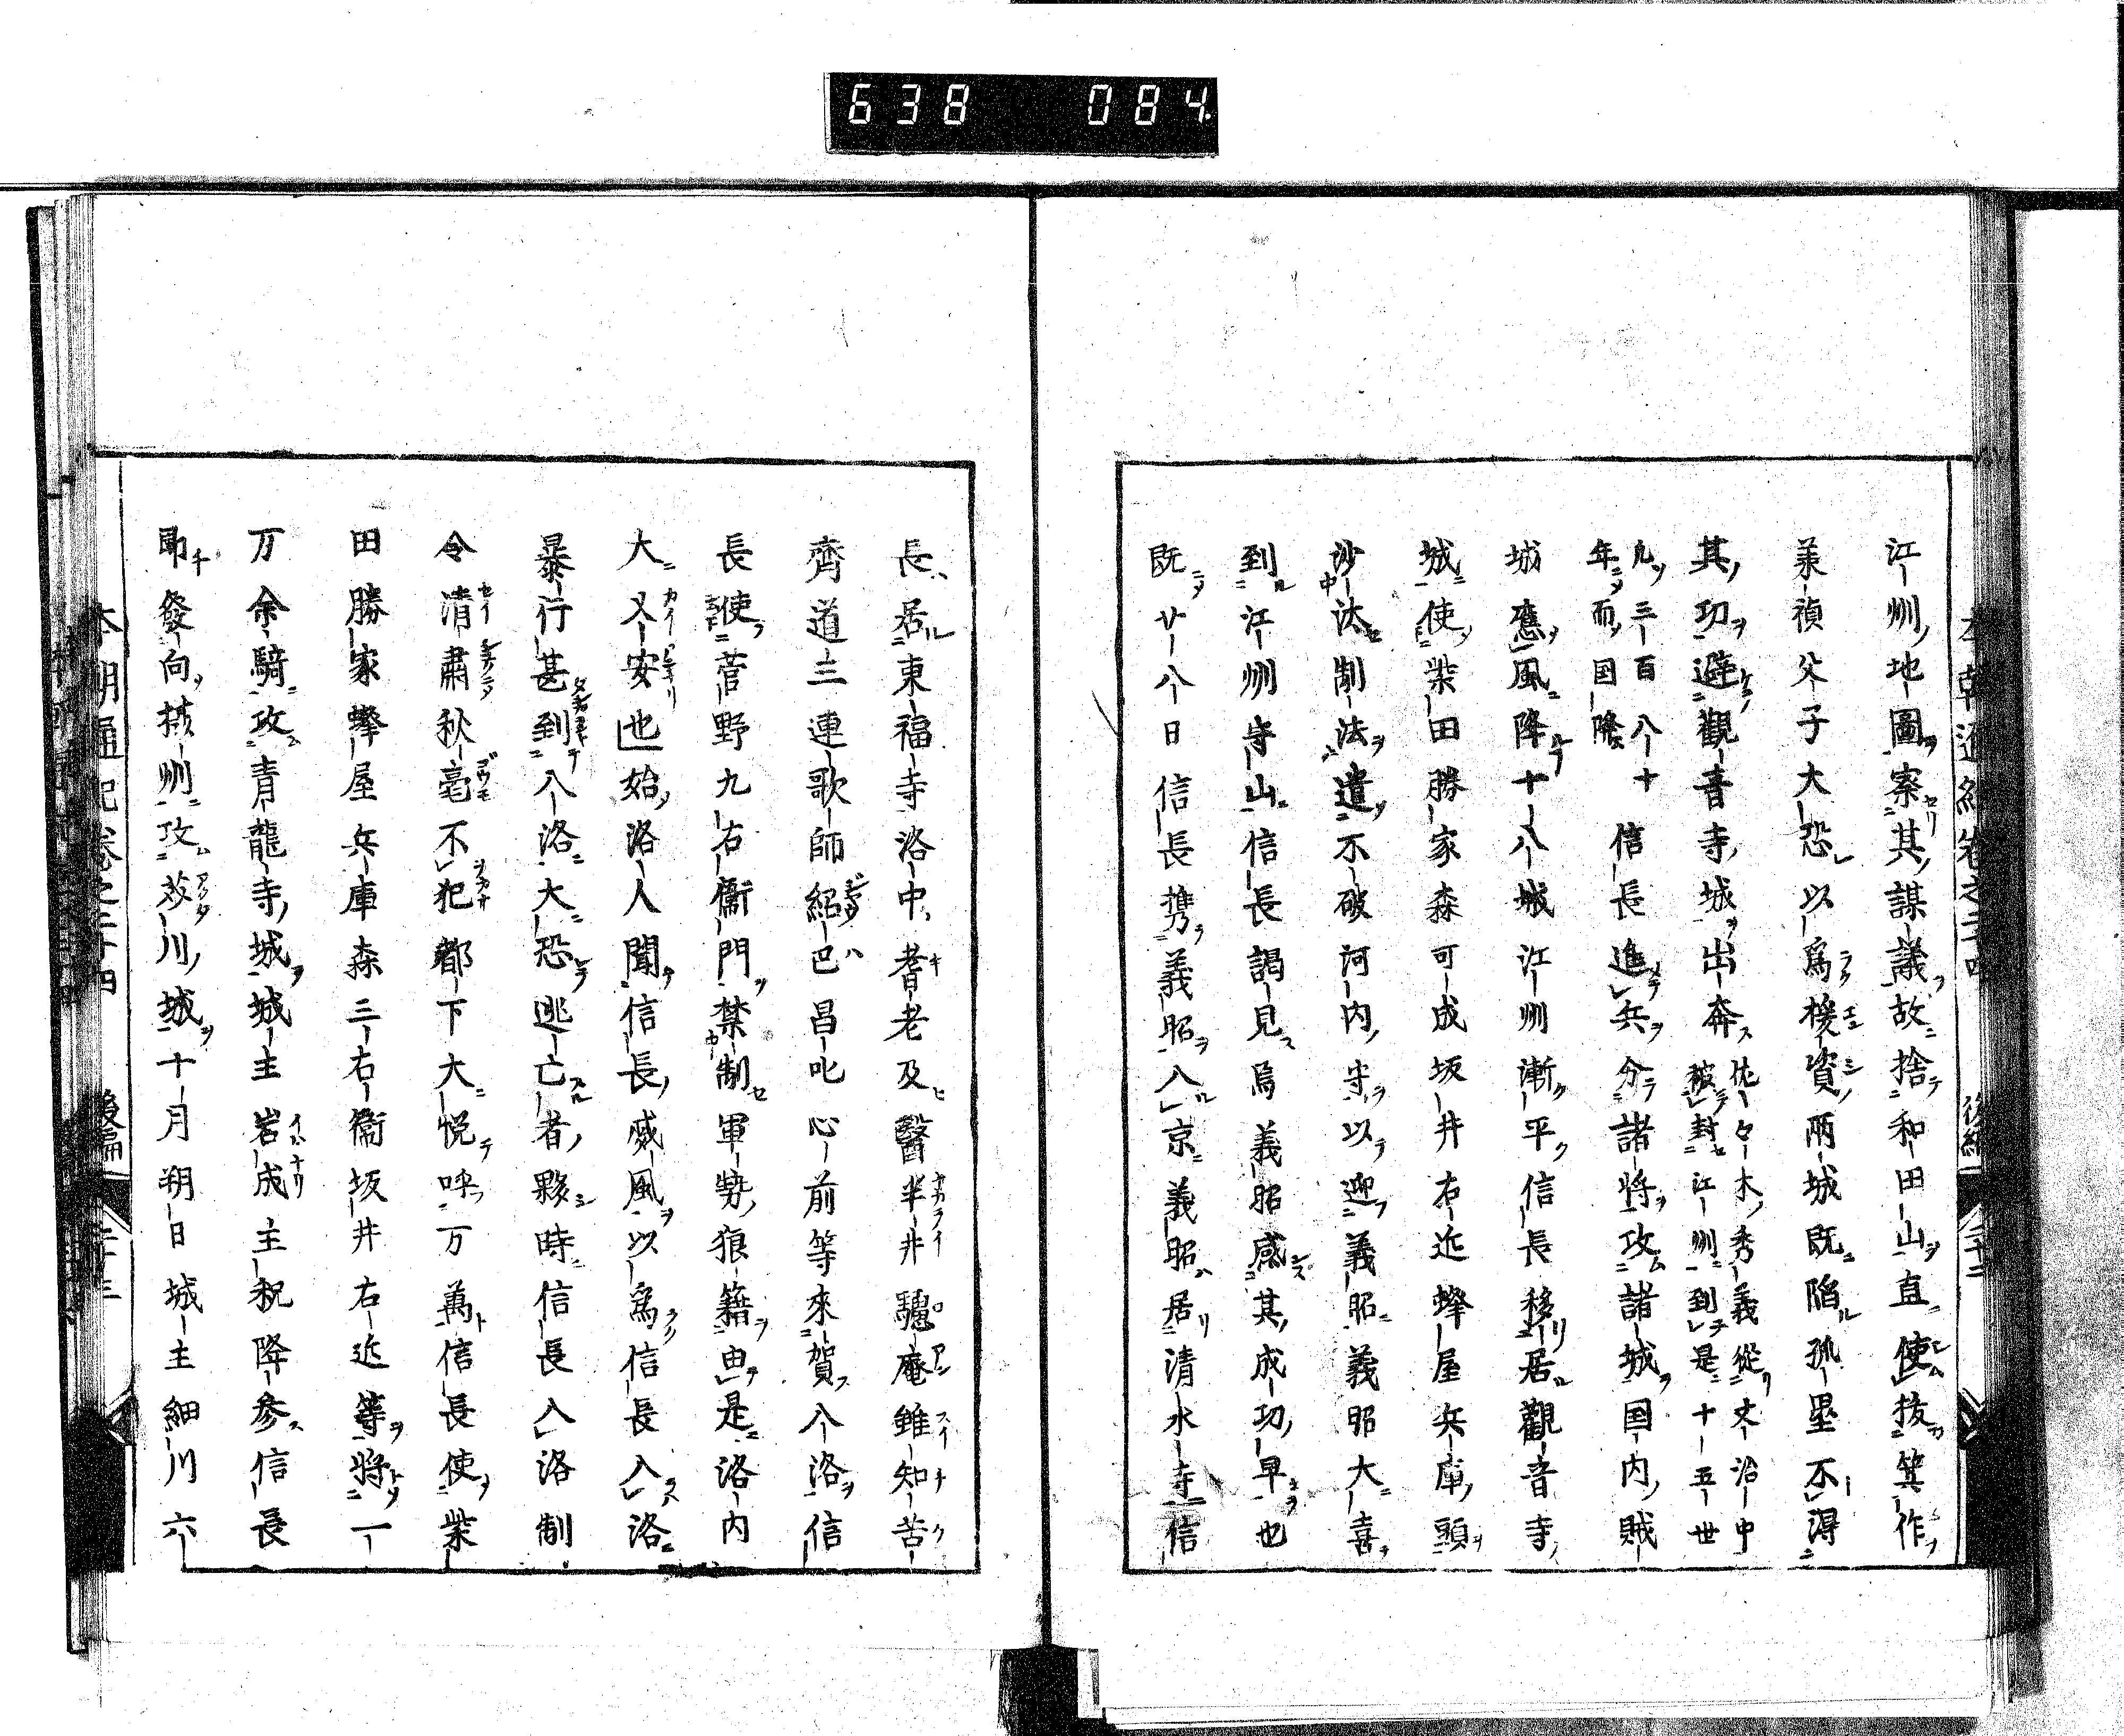 638 084
江州地圖察其謀議故捨和田山直使拔箕作
義禎父子大恐以爲援資兩城既陷孤壘不得
其功避觀音寺城出奔佐々木秀義從文治中
被封江州到是十五世
凡三百八十
年而国除信長進兵分諸将攻諸城国内賊
城應風降十八城江州漸平信長移居觀音寺
城使柴田勝家森可成坂井右近蜂屋兵庫頭
沙汰制法遣不破河内守以迎義昭義昭大喜
到江州守山信長謁見爲義昭感其成功早也
既廿八日信長携義昭入京義昭居清水寺信
長居東福寺洛中耆老及醫半井驢庵雖知苦
齊道三連歌師紹巴昌叱心前等來賀入洛信
長使菅野九右衞門禁制軍勢狼籍由是洛内
大乂安也始洛人聞信長威風以爲信長入洛
暴行甚到入洛大恐逃亡者夥時信長入洛制
令清肅秋毫不犯都下大悦呼万萬信長使柴
田勝家蜂屋兵庫森三右衞坂井右近等将一
万余騎攻青龍寺城城主岩成主税降參信長
即發向摂州攻芥川城十月朔日城主細川六
本朝通紀卷之二十四 後編 二十三